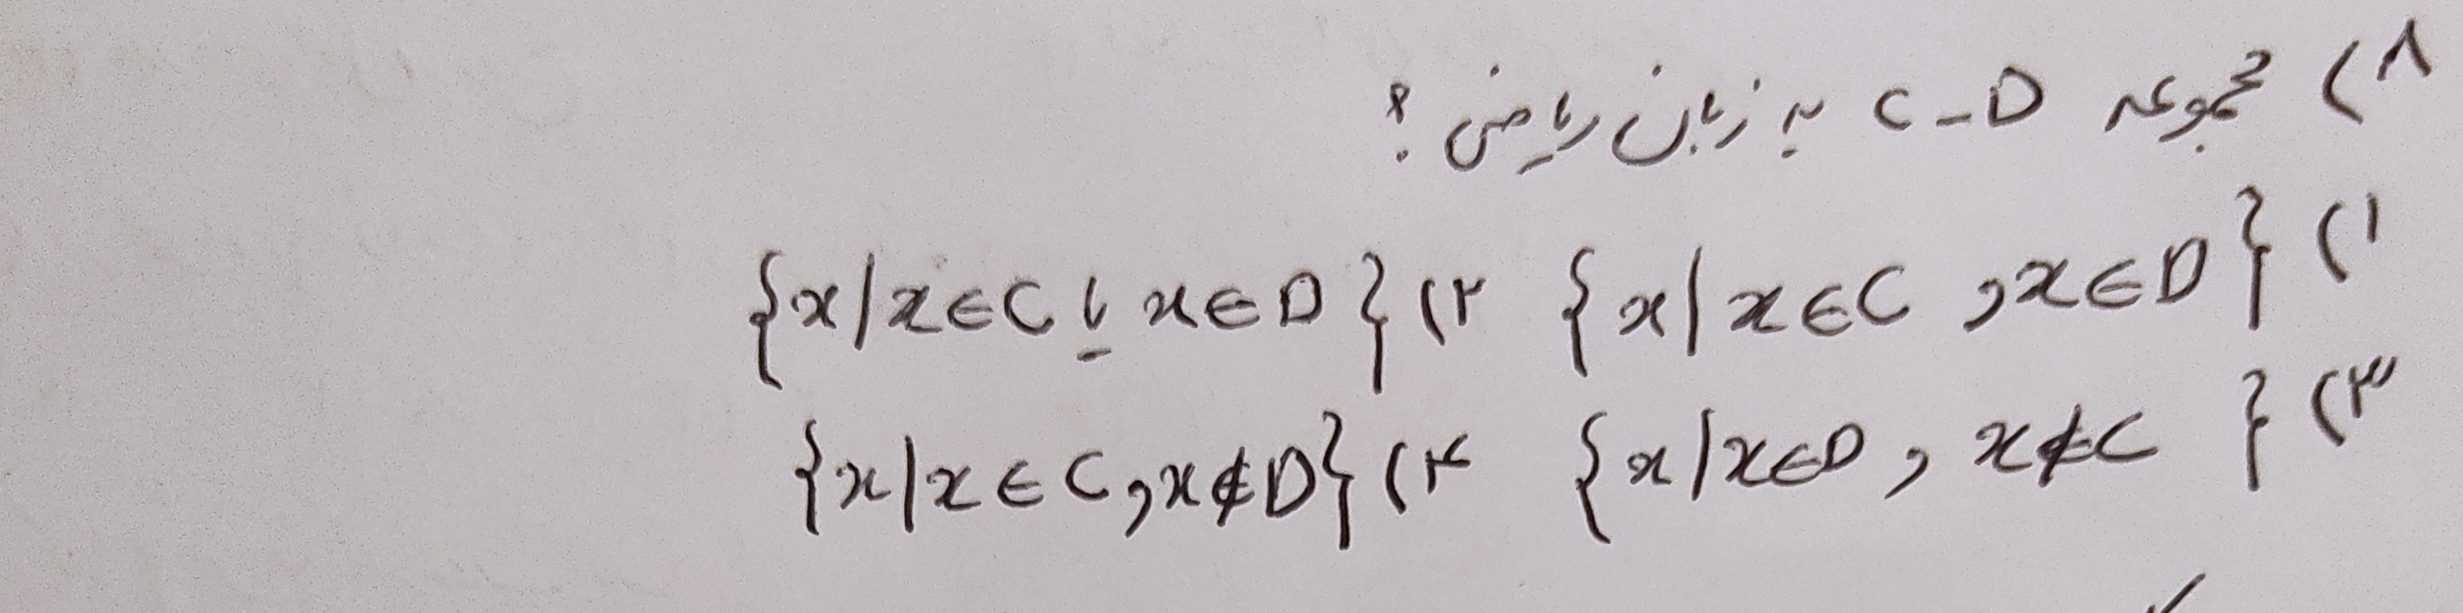 ۸) مجموعه C-D به زبان ریاضی ؟
۱) {x|x∈C و x∈D} ۲) {x|x∈C یا x∈D}
۳) {x|x∈D و x∉C} ۴) {x|x∈C و x∉D}